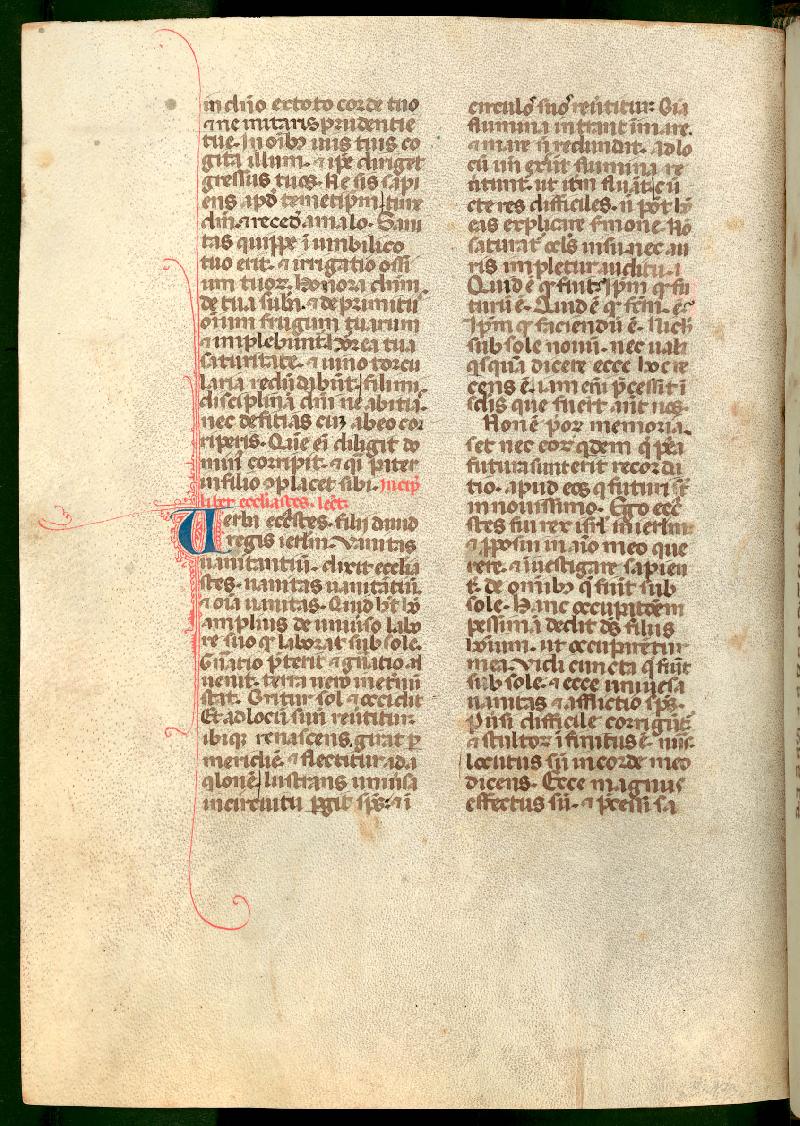 in dn̄o ex toto corde tuo
⁊ ne initaris prudentie
tue. In oı̄bꝫ uiis tuis co
gita illum. ⁊ ip̄e diriget
gressus tuos. Ne sis sapi
ens apd̓ temetipm̄ time
dm̄. ⁊ recede a malo. Sani
tas quippe ı̄ umbilico
tuo erit. ⁊ irrigatio ossi
um tuoꝝ. Honora dnm̄.
de tua subā. ⁊ de primitiis
oı̄um frugum tuarum
⁊ implebunt̄ horrea tua
saturitate. ⁊ uino torcu
laria redūdabūt. fili mi.
disciplinā dn̄i ne abiciā.
nec deficias cū ab eo cor
riperis. Quē eī diligit do
minꝰ corripit. ⁊ qī pater
in filio 9placet sibi. Incip̄
liber ecclīastes. lecti
Uerba ecc̄stes. filij dauid
regis ierlm̄. Vanitas
uanitantiū. dixit ecclīa
stes. uanitas uanitatiū.
⁊ oı̄a uanitas. Quid ht̄ hō
amplius de uniūso labo
re suo q̄ laborat sub sole.
Gn̄atio p̄terit ⁊ gn̄atio ad
uenit. terra uero ın etnū
stat. Oritur sol ⁊ occidit
Et ad locū suū reūtitur.
ibiqꝫ renascens. girat p̱
meridiē. ⁊ flectitur ad a
qlonē. lustrans uniūsa
in circuitu p̱git sp̄s. ⁊ ı̄
circulos̄ suos̄ reūtitur. Oı̄a
flumina intrant ı̄ mare.
⁊ mare n̄ redundat. ad lo
cū un̄ exeūt flumina re
ūtunt̄. ut itm̄ fluāt. cū
cte res difficiles. n̄ pōt hō
eas explicare s̄mone. Nō
saturat̄ ocl̄s uisu. nec au
ris impletur auditu.
Quid ē q̄ fuit. Ip̄m q̄ fu
turū ē. Quid ē q̄ fc̄m. ē
Ip̄m q̄ faciendū ē. Nich̄
sub sole nouū. nec ualꝫ
qsquā dicere ecce hoc re
cens ē. iam enī p̄cessit ı̄
sclīs que fuer̄t an̄ nos.
Non ē p̄or memoria.
set nec eoꝝ qdem q̄ p̄ea
futura sunt erit recorda
tio. apud eos q̄ futuri st̄
in nouissimo. Ego ecc̄
stes fui rex isrl̄ in ierlm̄
⁊ p̱posui in aı̄o meo que
rere. ⁊ ı̄uestigare sapien
t̄. de omībꝫ q̄ fiūt sub
sole. Hanc occupatōem
pessimā dedit ds̄ filiis
hoı̄um. ut occuparētur
in ea. Vidi cuncta q̄ fiūt
sub sole. ⁊ ecce uniūesa
uanitas ⁊ afflictio sp̄s.
P̱uersi difficile corrigūt̄
⁊ stultoꝝ ı̄finitus ē. nu̅s.
locutus sū in corde meo
dicens. Ecce magnus
effectus sū. ⁊ p̄cessi sa